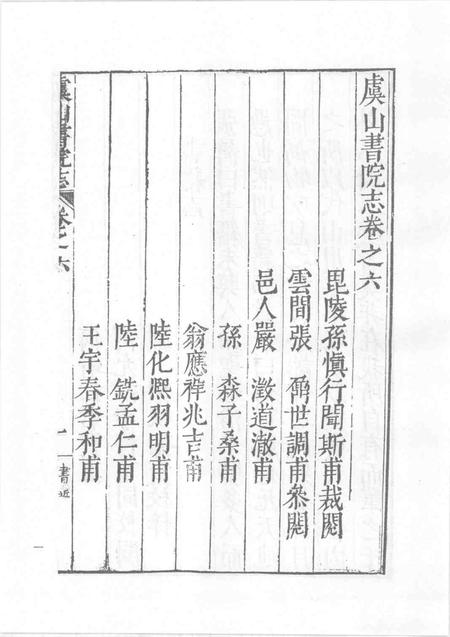 虞山書院志卷之六
毘陵孫愼行聞斯甫裁閱
雲間張鼐世調甫叅閱
邑人嚴澂道澈甫
孫森子桑甫
翁應祥兆吉甫
陸化熙羽明甫
陸銑孟仁甫
王宇春季和甫
虞山書院志
卷之六
一